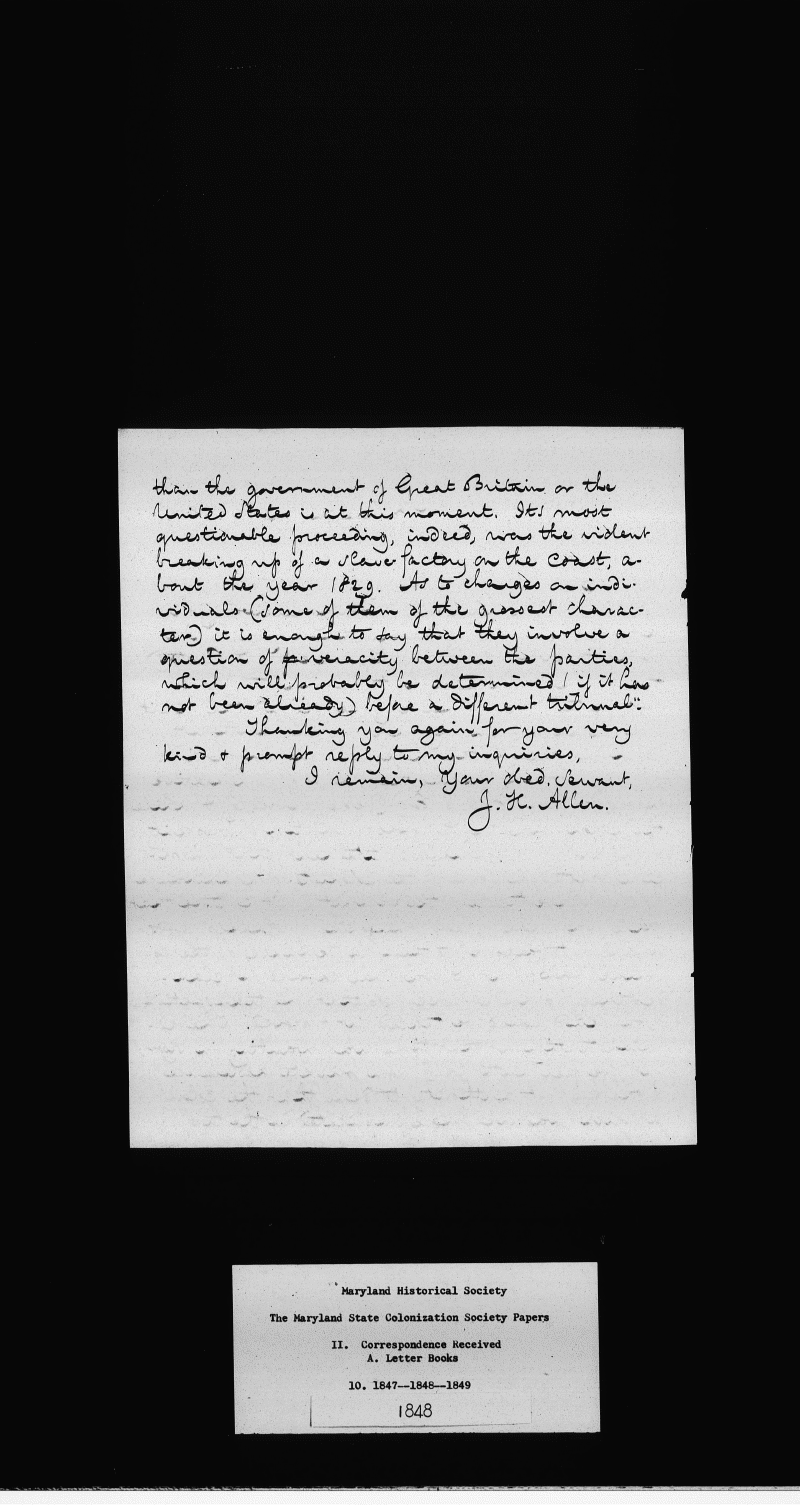 than the government of Great Britain or the
United States is at this moment. Its most
questionable proceeding, indeed, was the violent
breaking up of a slave factory on the coast, a-
bout the year 1829. As to charges on indi-
viduals (some of them of the grossest charac-
ter) it is enough to say that they involve a
question of veracity between the parties,
which will probably be determined (if it has
not been already) before a different tribunal".
Thanking you again for your very
kind & prompt reply to my inquiries,
I remain, Your obed. Servant,
J. H. Allen.
Maryland Historical Society
The Maryland State Colonization Society Papers
II. Correspondence Received
A. Letter Books
10. 1847--1848--1849
1848